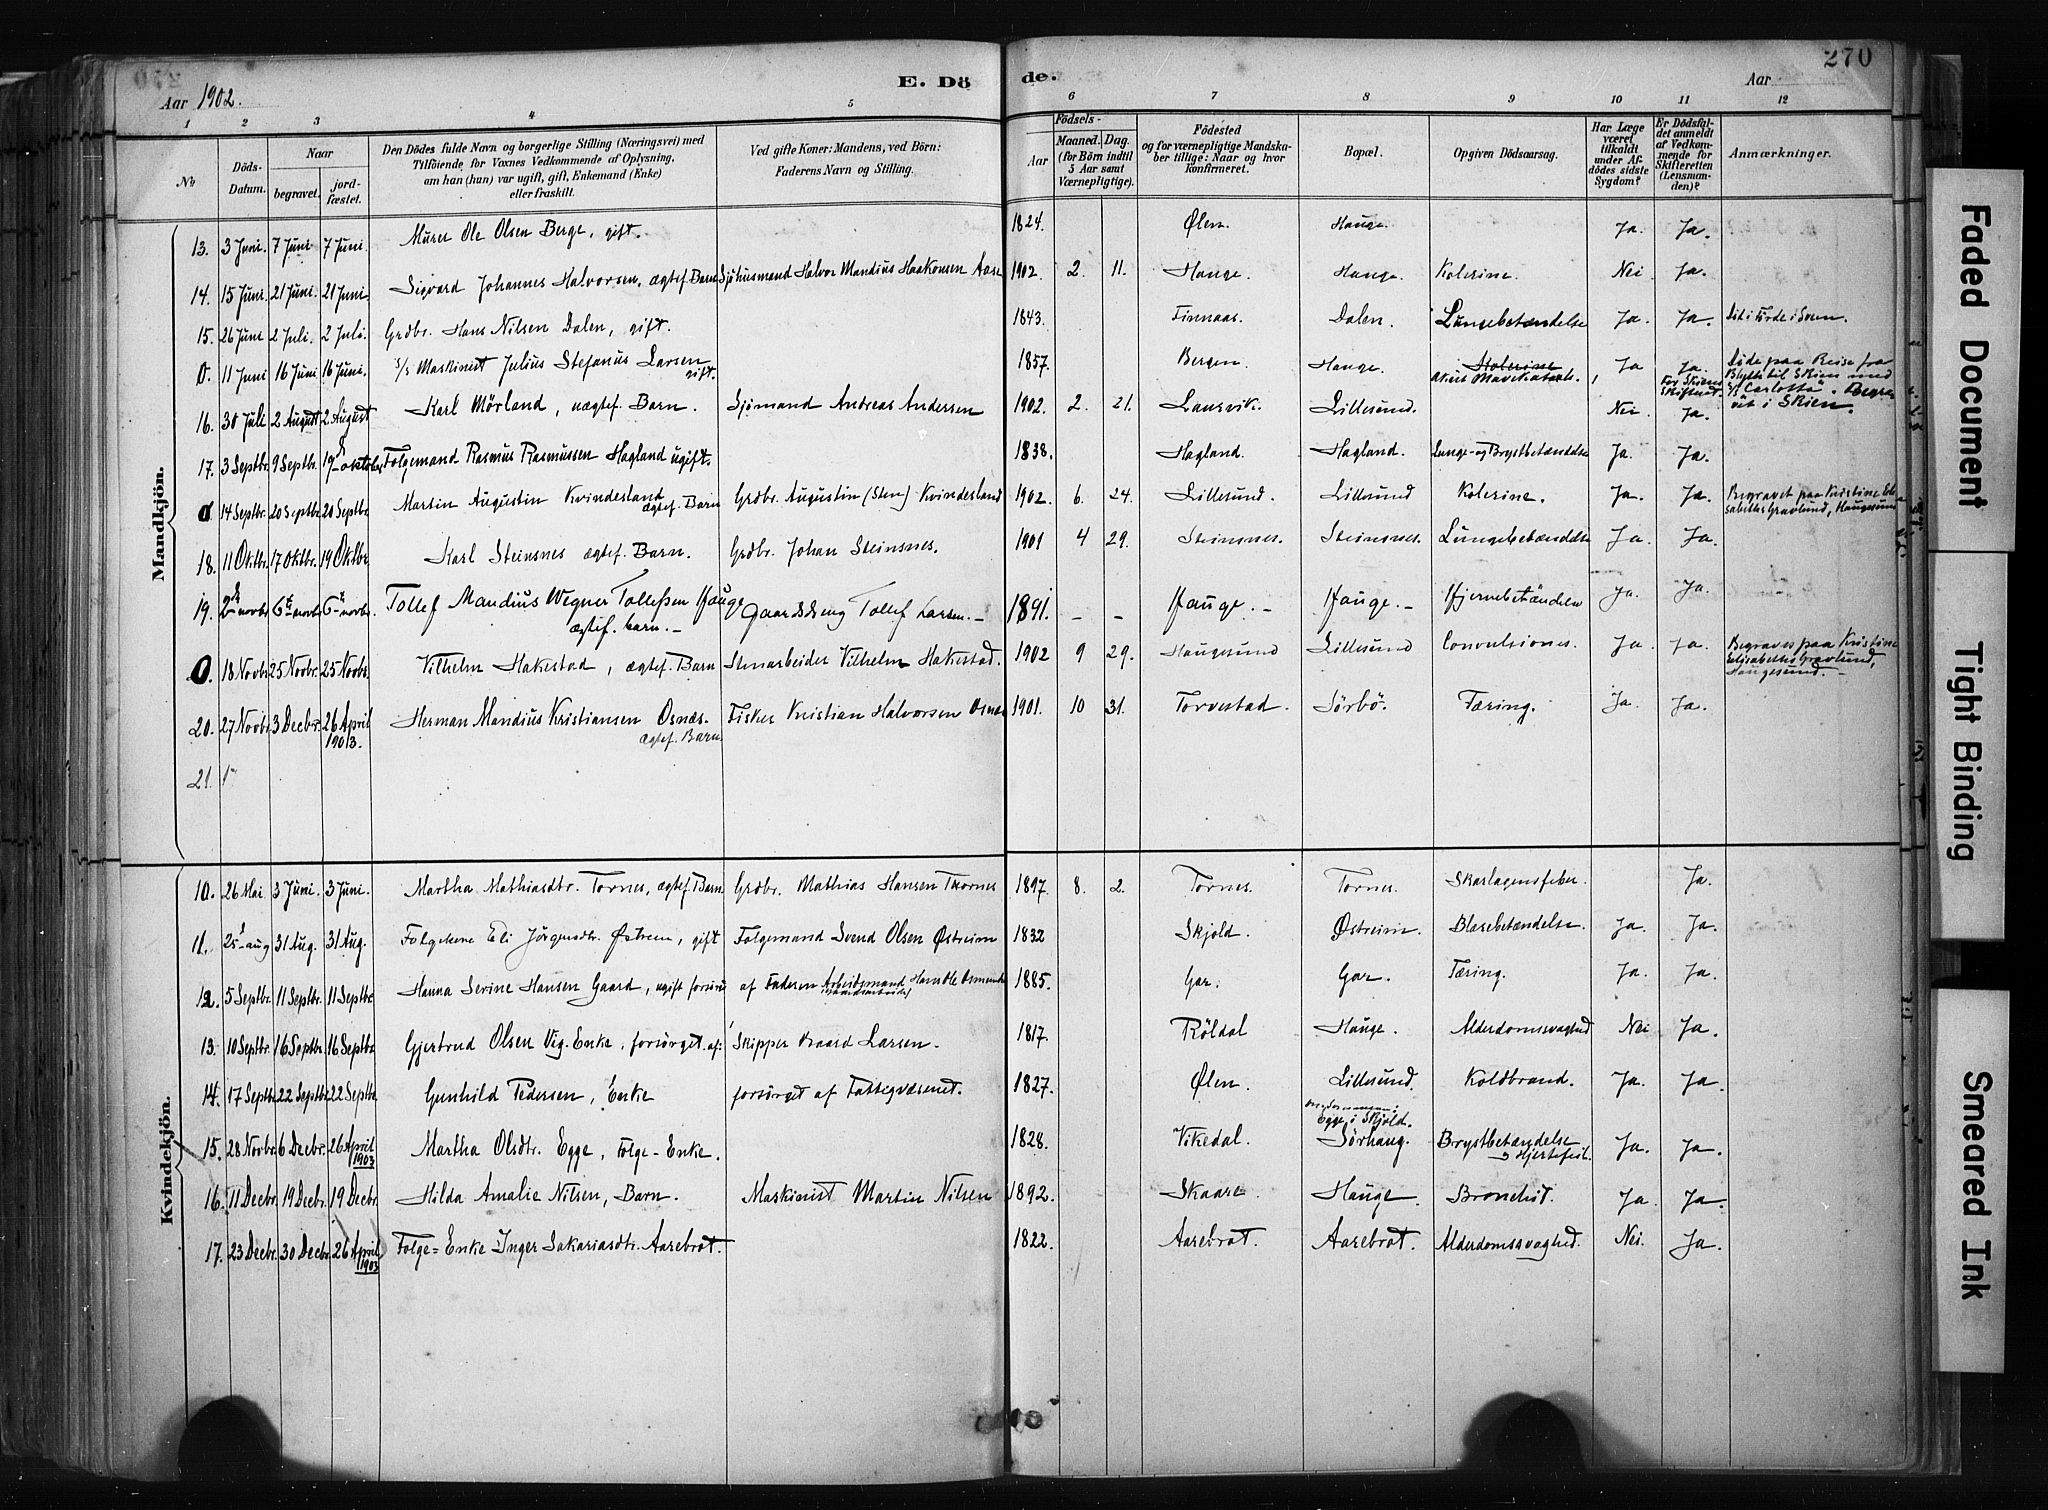 270
Aar 1902.
E. Dö
de.
Aar
1 2 3 4 5 6 7 8 9 10 11 12
No
Döds-Datum.
Naar
begravet.
jord-fæstet.
Den Dödes fulde Navn og borgerlige Stilling (Næringsvei) med
Tilföiende for Voxnes Vedkommende af Oplysning,
om han (hun) var ugift, gift, Enkemand (Enke)
eller fraskilt.
Ved gifte Koner: Mandens, ved Börn:
Faderens Navn og Stilling.
Födsels-
Aar
Maaned. Dag.
(for Börn indtil
5 Aar samt
Værnepligtige).
Födested
og for værnepligtige Mandska-
ber tillige: Naar og hvor
konfirmeret.
Bopæl.
Opgiven Dödsaarsag.
Har Læge
været
tilkaldt
under Af-
dödes sidste
Sygdom?
Er Dödsfal-
det anmeldt
af Vedkom-
mende for
Skifteretten
(Lensman-
den)?
Anmærkninger.
Mandkjön.
13. 3 Juni. 7 Juni 7 Juni. Murer Ole Olsen Berge, gift. 1824. Ølen. Hauge. Ja. Ja.
14. 15 Juni. 21 Juni. 21 Juni. Sigvard Johannes Halvorsen, ægtef. Barn Sjöhusmand Halvor Mandius Haakonsen Aase 1902. 2. 11. Hauge. Hauge. Kolerine. Nei. Ja.
15. 26 Juni 2 Juli. 2 Juli. Grdbr. Hans Nilsen Dalen, gift. 1843. Finnaas. Dalen. Lungebetændelse Ja. Ja.
0. 11 Juni 16 Juni 16 Juni. S/S Maskinist Julius Stefanus Larsen gift. 1857. Bergen Hauge. Kolerine Ja Ja. Döde paa Reise fra
Blyth til Skien med
S/S "Carlotta". Begra-
vet i Skien.
16. 30 Juli 2 August 2 August Karl Mörland, uægtef. Barn. Sjömand Andreas Andersen 1902. 2. 21. Lillesund. Nei. Ja.
17. 3 Septbr. 9 Septbr. 19 oktober Folgemand Rasmus Rasmussen Hagland ugift. 1838. Hagland. Hagland. Lunge- og Brystbetændelse Ja. Ja.
0. 14 Septbr. 20 Septbr. 20 Septbr. Martin Augustin Kvindesland ægtef. Barn Grdbr. Augustin (Sten) Kvindesland 1902. 6. 24. Lillesund. Lillesund Kolerine. Ja. Ja. Begravet paa Kristine Eli-
sabeths Gravlund, Haugesund
18. 11 Oktbr. 17 Oktbr. 19 Oktbr. Karl Steinsnes ægtef. Barn. Grdbr. Johan Steinsnes. 1901 4 29. Steinsnes. Steinsnes. Lungebetændelse Ja. Ja.
19. 2den novbr 6te novbr 6te novbr. Tollef Mandius Wegner Tollefsen Hauge ægtef. barn.- Tollef Larsen.- 1891. - - Hauge.- Hauge.- Hjernebetændelse Ja. Ja.
0. 18 Novbr. 25 Novbr. 25 Novbr. Vilhelm Hakestad, ægtef. Barn Stenarbeider Vilhelm Hakestad. 1902 9 29. Haugesund Lillesund Convulsiones. Ja. Ja. Begraves paa Kristine
Elisabeths Gravlund,
Haugesund.-
20. 27 Novbr. 3 Decbr. 26 April 1903. Herman Mandius Kristiansen Osnæs. ægtef. Barn. Fisker Kristian Halvorsen Osnæs 1901. 10 31. Torvestad. Sörbö. Tæring. Ja. Ja.
21. 1
Kvindekjön.
10. 26 Mai 3 Juni. 3 Juni. Martha Mathiasdtr. Tornes, ægtef. Barn Grdbr. Mathias Hansen Tornes 1897. 8. 2. Tornes. Tornes. Skarlagensfeber. Ja.
11. 25 aug 31 Aug. 31 Aug. Folgekone Eli Jörgensdtr. Østrem, gift Folgemand Svend Olsen Østreim 1832 Skjold. Østreim. Blærebetændelse. Ja. Ja.
12. 5 Septbr. 11 Septbr. 11 Septbr Hanna Serine Hansen Gaard, ugift forsörg. af Faderen Arbeidsmand Hans Ole Osmundsen 1885. Gar. Gar. Tæring. Ja. Ja.
13. 10 Septbr. 16 Septbr. 16 Septbr Gjertrud Olsen Vig. Enke, forsörget af: Skipper Baard Larsen. 1817. Röldal Hauge. Alderdomssvaghed Nei Ja.
14. 17 Septbr. 22 Septbr. 22 Septbr. Gunhild Pedersen, Enke forsörget af Fattigvæsenet. 1827. Ølen. Lillesund. Koldbrand. Ja. Ja.
15. 28 Novbr. 6 Decbr. 26 April 1903 Martha Olsdtr. Egge, Folge-Enke. 1828. Vikedal. Egge i Skjold. Sörhaug. Brystbetændelse og Hjertefeil. Ja. Ja.
16. 11 Decbr. 19 Decbr. 19 Decbr. Hilda Amalie Nilsen, Barn. Maskinist Martin Nilsen 1892. Skaare. Hauge. Bronchit. Ja. Ja.
17. 23 Decbr. 30 Decbr. 26 April 1903 Folge-Enke Inger Sakariasdtr. Aarebrot. 1822. Aarebrot. Aarebrot. Alderdomssvaghed. Nei. Ja.
Faded Document
Tight Binding
Smeared Ink